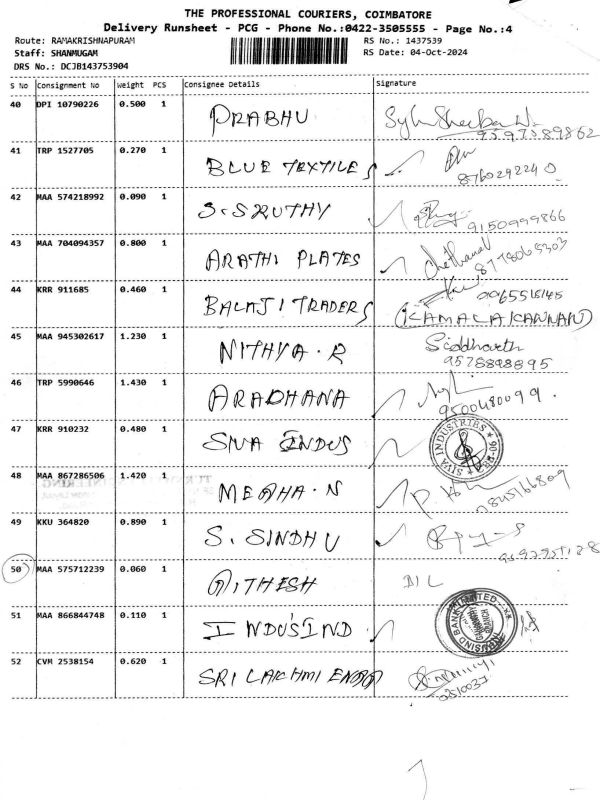 THE PROFESSIONAL COURIERS, COIMBATORE
Delivery Runsheet - PCG - Phone No.:0422-3505555 - Page No.:4
Route: RAMAKRISHNAPURAM RS No.: 1437539
Staff: SHANMUGAM RS Date: 04-Oct-2024
DRS No.: DCJB143753904
S No Consignment No Weight PCS Consignee Details Signature
40 DPI 10790226 0.500 1 PRABHU
9597389862
41 TRP 1527705 0.270 1 BLUE TEXTILES
8760292240
42 MAA 574218992 0.090 1 S.SRUTHY
9150999866
43 MAA 704094357 0.800 1 ARATHI PLATES
8778065303
44 KRR 911685 0.460 1 BALAJI TRADERS
(KAMALAKANNAN)
45 MAA 945302617 1.230 1 NITHYA.R Siddharth
9578898895
46 TRP 5990646 1.430 1 ARADHANA
9500480099.
47 KRR 910232 0.480 1 SIVA INDUS
SIVA INDUSTRIES
48 MAA 867286506 1.420 1 MEGHA.N
49 KKU 364820 0.890 1 S.SINDHU
50 MAA 575712239 0.060 1 NITHESH DIL
51 MAA 866844748 0.110 1 INDUSIND
INDUSIND BANK LIMITED
52 CVM 2538154 0.620 1 SRI LAKHMI ENGG